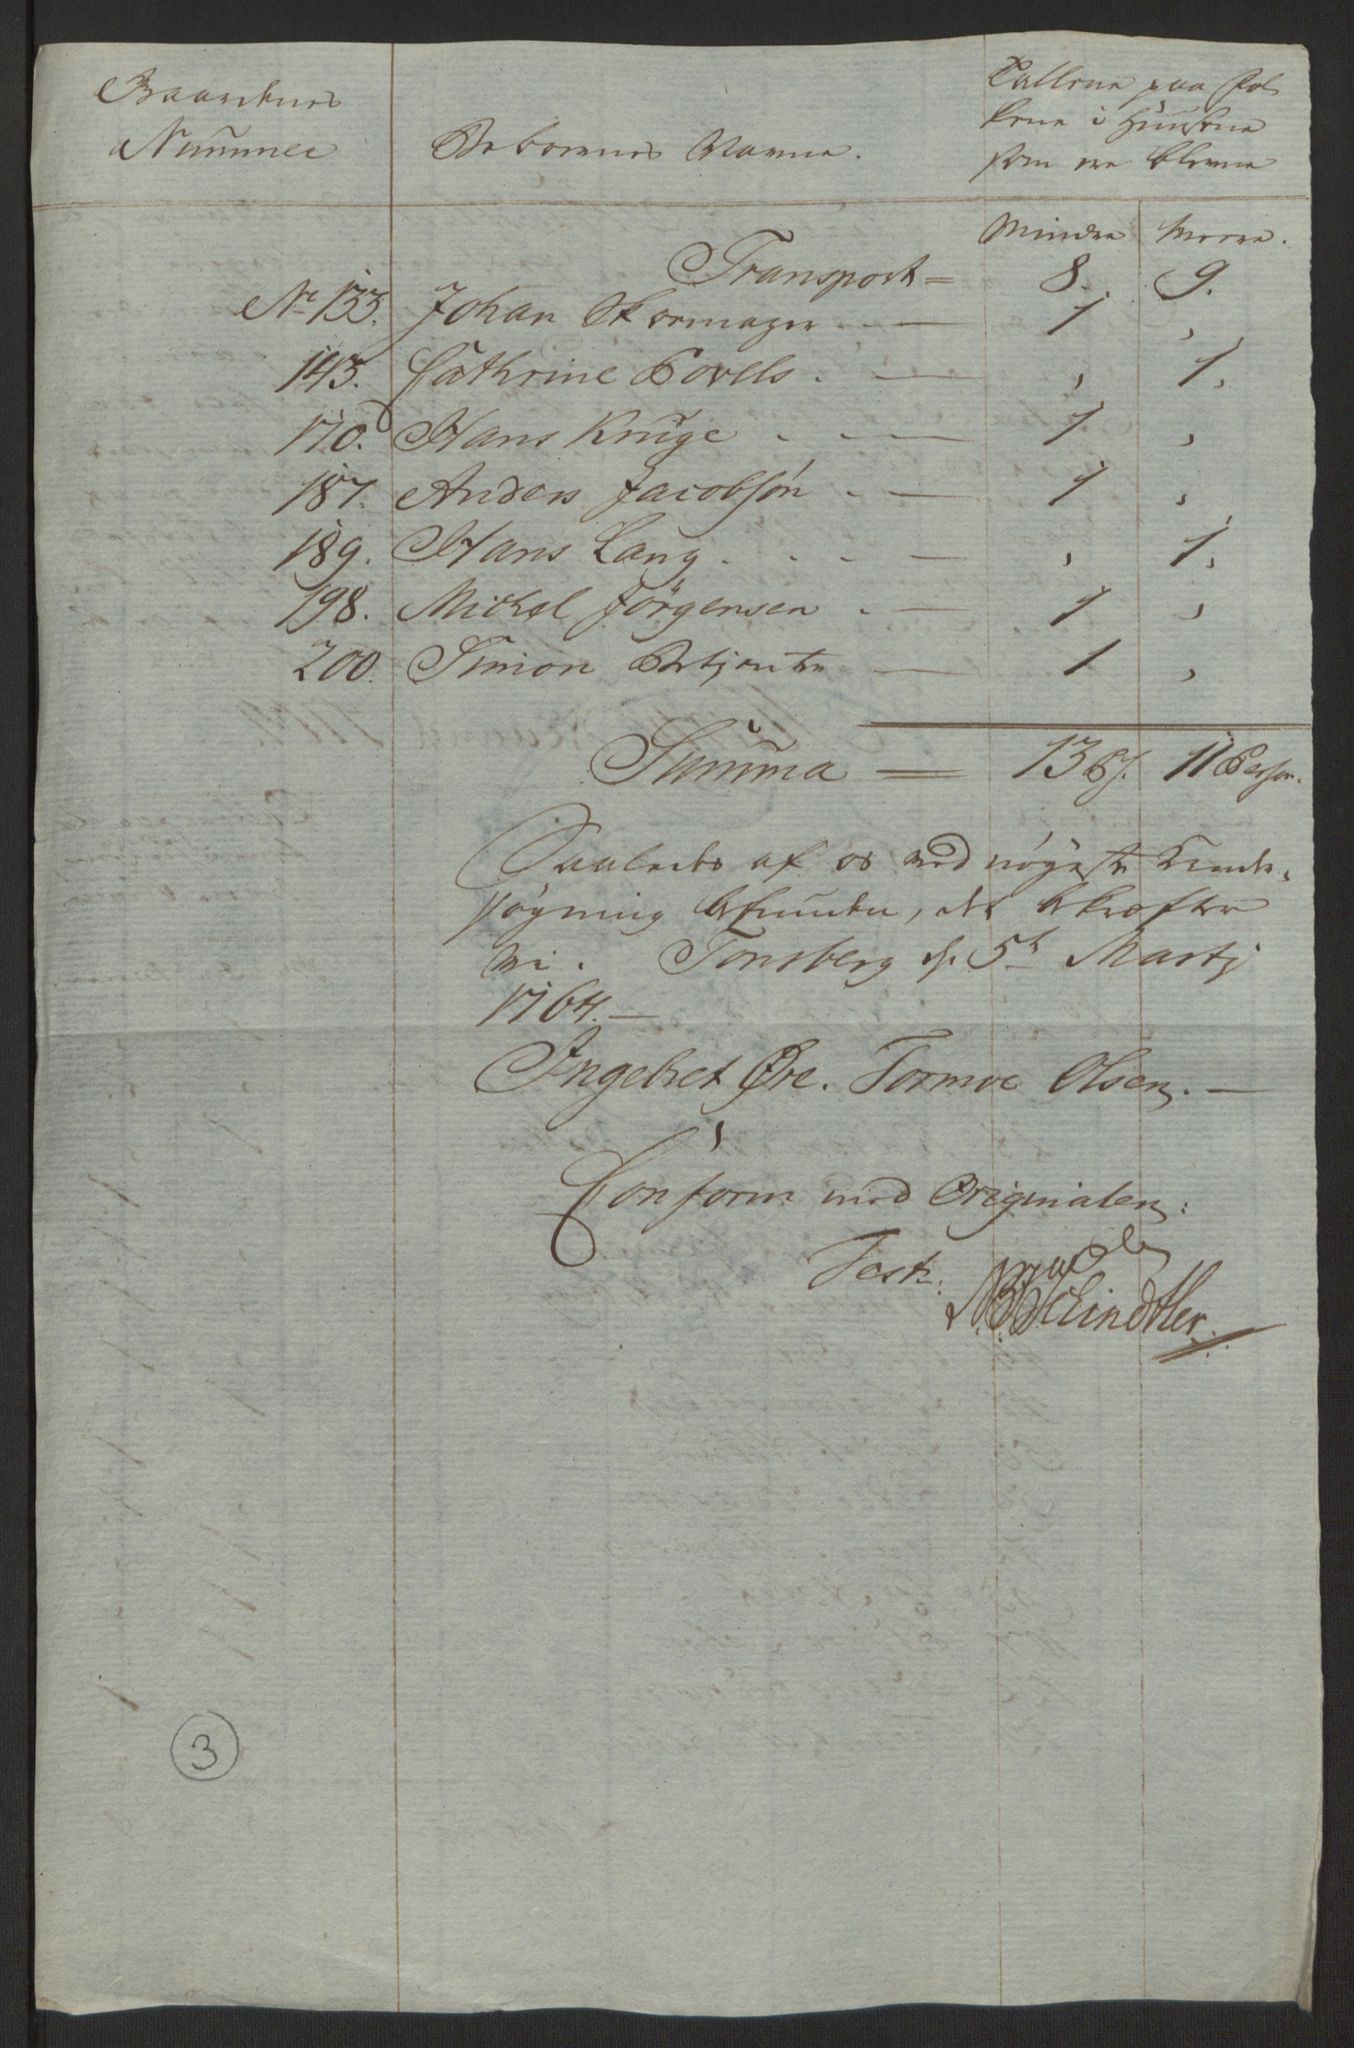 Gaardenes Nummer
Beboernes Navne.
Tallene paa Fol-
kene i Huusene
som ere blevne
Mindre Meere.
Transport = 8. 9.
No 133. Johan Skoemager . — 1 ,
143. Cathrine Povels . — , 1,
170. Hans Kruge . . — 1 ,
187. Anders Jacobsøn . — 1 ,
189. Hans Lang . . . — , 1,
198. Mickel Jörgensen . — 1 ,
200. Simon Betjente — 1 ,
Summa — 13 Ps. 11 Person.
Saaledes af os med nøyeste Under-
søgning befunden, det bekræfter
vi. Tonsberg d. 5te Martj
1764. —
Ingebret Øre. Tormoe Olsen. —
Conform med Originalen:
Test:
3